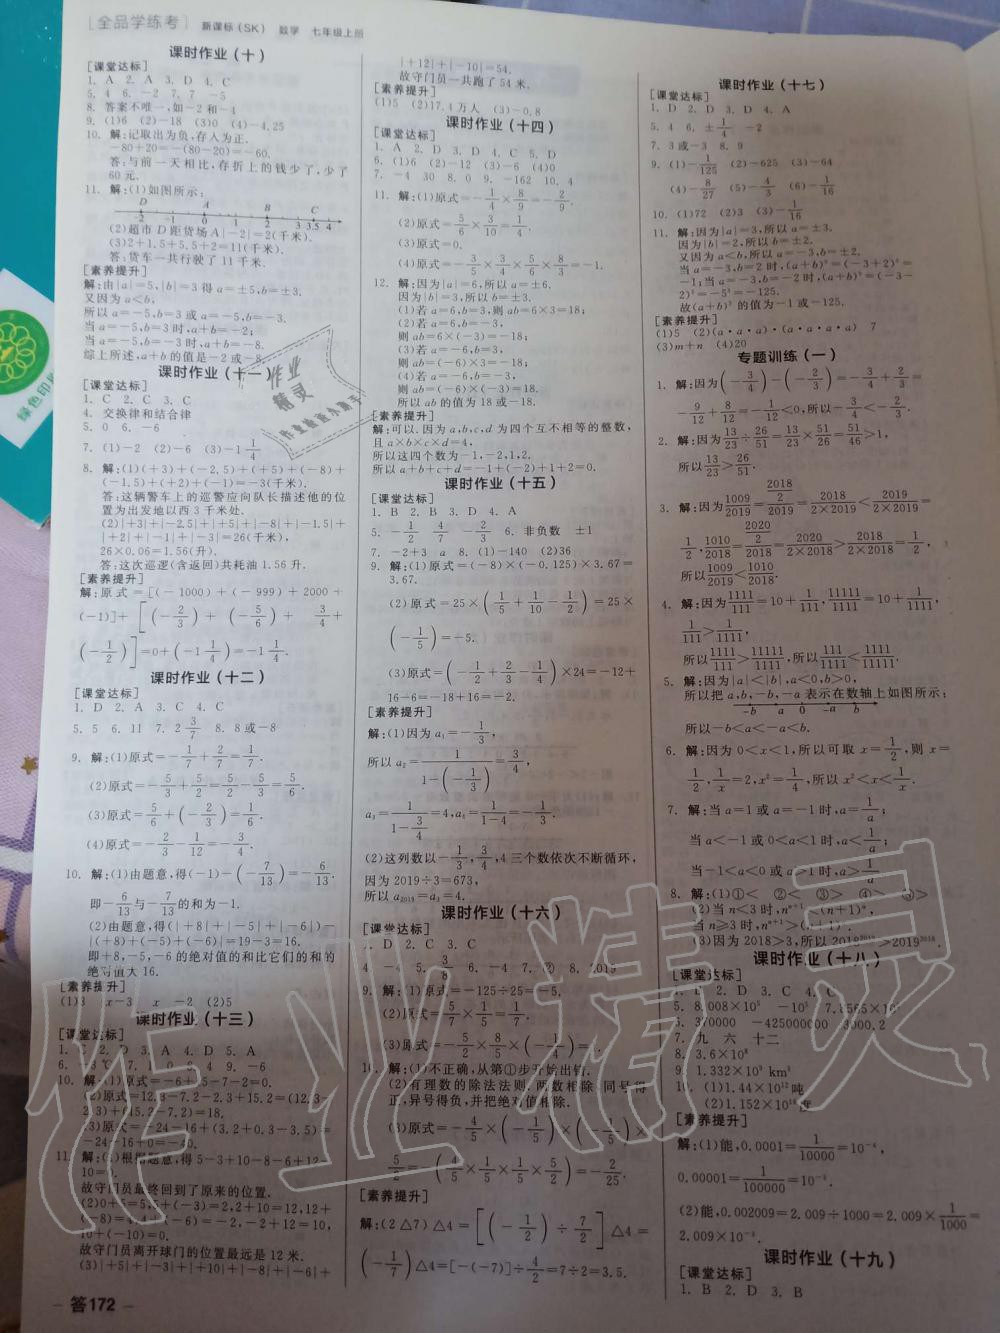 [全品学练考] 新课标(SK) 数学 七年级上册
课时作业(十)
[课堂达标]
1. A 2. A 3. D 4. C
5. 4 6. -2 7. 7 -5
8. 答案不唯一,如-2和-4
9. (1)6 (2)-18 (3)0 (4)-4.25
10. 解:记取出为负,存入为正.
-80+20=-(80-20)=-60.
答:与前一天相比,存折上的钱少了,少了
60元.
11. 解:(1)如图所示:
D A B C
-2 -1 0 1 2 3 3.5 4
(2)超市D距货场A|-2|=2(千米).
(3)2+1.5+5.5+2=11(千米).
答:货车一共行驶了11千米.
[素养提升]
解:由|a|=5,|b|=3得a=±5,b=±3.
又因为a<b,
所以a=-5,b=3或a=-5,b=-3.
当a=-5,b=3时,a+b=-2;
当a=-5,b=-3时,a+b=-8.
综上所述,a+b的值是-2或-8.
课时作业(十一)
[课堂达标]
1. C 2. C 3. C
4. 交换律和结合律
5. 0 6. -6
7. (1)-2 (2)-6 (3)-1 1/4
8. 解:(1)(+3)+(-2.5)+(+5)+(-8)+
(-1.5)+(+2)+(-1)=-3(千米).
答:这辆警车上的巡警应向队长描述他的位
置为出发地以西3千米处.
(2)|+3|+|-2.5|+|+5|+|-8|+|-1.5|+
|+2|+|-1|+|-3|=26(千米),
26×0.06=1.56(升).
答:这次巡逻(含返回)共耗油1.56升.
[素养提升]
解:原式=[(-1000)+(-999)+2000+
(-1)]+[(-2/3)+(-5/6)+3/4+
(-1/2)]=0+(-1 1/4)=-1 1/4.
课时作业(十二)
[课堂达标]
1. D 2. A 3. C 4. C
5. 5 6. 11 7. 2 3/7 8. 8或-8
9. 解:(1)原式=-1/7+2/7=1/7.
(2)原式=-5/3+5/2=5/2-5/3=5/6.
(3)原式=5/6+(-2/3)=1/6.
(4)原式=-2/3-1/12=-3/4.
10. 解:(1)由题意,得(-1)-(-7/13)=-6/13.
即-6/13与-7/13的和为-1.
(2)由题意,得(|+8|+|-5|+|-6|)-
[(+8)+(-5)+(-6)]=19-3=16.
即+8,-5,-6的绝对值的和比它们的和的
绝对值大16.
[素养提升]
(1)3 x-3 x -2 (2)5
课时作业(十三)
[课堂达标]
1. C 2. D 3. A 4. D 5. A
9. -6
10. 解:(1)原式=-6+5-7-2=0.
(2)原式=12.3-7.2-2.3+15.2=(12.3-
2.3)+(15.2-7.2)=18.
(3)原式=-24-16+(3.2+0.3-3.5)=
-24-16+0=-40.
11. 解:(1)根据题意,得5-3+10-8-6+12-
10=0.
故守门员最终回到了原来的位置.
故守门员离开球门的位置最远是12米.
(3)|+5|+|-3|+|+10|+|-8|+|-6|+
答172
|+12|+|-10|=54.
故守门员一共跑了54米.
[素养提升]
(1)5 (2)17.4万人 (3)-0.8
课时作业(十四)
[课堂达标]
1. A 2. D 3. D 4. C 5. D
6. (1)6 (2)-12 (3)-6 (4)0
7. -4 30 8. 0 9. -162 10. 4
11. 解:(1)原式=-1/4×8/9=-2/9.
(2)原式=5/6×3/10=1/4.
(3)原式=0.
(4)原式=-3/5×3/4×5/6×8/3=-1.
12. 解:因为|a|=6,所以a=±6.
(1)若a=6,b=3,则ab=6×3=18;
(2)若a=6,b=-3,
则ab=6×(-3)=-18;
(3)若a=-6,b=3,
则ab=(-6)×3=-18;
(4)若a=-6,b=-3,
则ab=(-6)×(-3)=18.
所以ab的值为18或-18.
[素养提升]
解:可以.因为a,b,c,d为四个互不相等的整数,
且a×b×c×d=4,
所以这四个数为-1,-2,1,2.
所以a+b+c+d=-1+(-2)+1+2=0.
课时作业(十五)
[课堂达标]
1. B 2. B 3. D 4. A
5. -1/2 4/7 -2/3 6. 非负数 ±1
7. -2÷3 a 8. (1)-140 (2)36
9. 解:(1)原式=(-8)×(-0.125)×3.67=
3.67.
(2)原式=25×(1/5+1/10-1/2)=25×
(-1/5)=-5.
(3)原式=(-1/2+2/3-1/4)×24=-12+
16-6=-18+16=-2.
[素养提升]
解:(1)因为a₁=-1/3,
所以a₂=1/(1-(-1/3))=3/4,
a₃=1/(1-3/4)=4,a₄=1/(1-4)=-1/3.
(2)这列数以-1/3,3/4,4三个数依次不断循环,
因为2019÷3=673,
所以a₂₀₁₉=a₃=4.
课时作业(十六)
[课堂达标]
1. D 2. C 3. C
4. -4 5. 3/8 6. -4 7. ② 8. 2019
9. 解:(1)原式=-125÷25=-5.
(2)原式=5/7×1/5=1/7.
10. 解:(1)不正确,从第①步开始出错.
(2)有理数的除法法则:两数相除,同号得
正,异号得负,并把绝对值相除.
(3)原式=-4/5×(-1/5)×(-1/5)×
5/2=-(4/5×1/5×1/5×5/2)=-2/25.
[素养提升]
解:(2△7)△4=[(-1/2)÷7/2]△4=
(-1/7)△4=[-(-7)]÷4/2=7÷2=3.5.
课时作业(十七)
[课堂达标]
1. D 2. D 3. D 4. A
5. 4 6. ±1/4 -2
7. 3或-3 8. 9
9. (1)-1/125 (2)-625 (3)-64
(4)-8/27 (5)-4/3 (6)-1/16
10. (1)72 (2)3 (3)-1/16
11. 解:因为|a|=3,所以a=±3.
因为|b|=2,所以b=±2.
又因为a<b,所以a=-3,b=±2.
当a=-3,b=2时,(a+b)³=(-3+2)³=
-1;当a=-3,b=-2时,(a+b)³=(-3-
2)³=-5³=-125.
故(a+b)³的值为-1或-125.
[素养提升]
(1)5 (2)(a·a·a)·(a·a·a·a) 7
(3)m+n (4)20
专题训练(一)
1. 解:因为(-3/4)-(-2/3)=-3/4+2/3=
-9/12+8/12=-1/12<0,所以-3/4<-2/3.
2. 解:因为13/23÷26/51=13/23×51/26=51/46>1,
所以13/23>26/51.
3. 解:因为1009/2019=(2018/2)/2019=2018/(2×2019)<2019/(2×2019)=
1/2,1010/2018=(2020/2)/2018=2020/(2×2018)>2018/(2×2018)=1/2,
所以1009/2019<1010/2018.
4. 解:因为1111/111=10+1/111,11111/1111=10+1/1111,
1/111>1/1111,
所以1111/111>11111/1111,所以111/1111<1111/11111.
5. 解:因为|a|<|b|,a<0,b>0,
所以把a,b,-b,-a表示在数轴上如图所示:
-b a 0 -a b
所以-b<a<-a<b.
6. 解:因为0<x<1,所以可取x=1/2,则x=
1/2,1/x=2,x²=1/4,所以x²<x<1/x.
7. 解:当a=1或a=-1时,a=1/a;
当a<-1或0<a<1时,a<1/a;
当-1<a<0或a>1时,a>1/a.
8. 解:(1)①< ②< ③> ④> ⑤>
(2)当n<3时,nⁿ⁺¹<(n+1)ⁿ,
当n≥3时,nⁿ⁺¹>(n+1)ⁿ.
(3)因为2018>3,所以2018²⁰¹⁹>2019²⁰¹⁸
课时作业(十八)
[课堂达标]
1. B 2. D 3. C 4. C
6. 370000 -425000000 3000.2
7. 九 六 十二
9. 1.332×10⁹ km³
[素养提升]
解:(1)能,0.0001=1/10000=10⁻⁴,
0.00001=1/100000=10⁻⁵.
(2)能,0.002009=2.009÷1000=2.009×1/1000=
2.009×10⁻³.
课时作业(十九)
[课堂达标]
1. B 2. D 3. B
绿色印
作业精灵